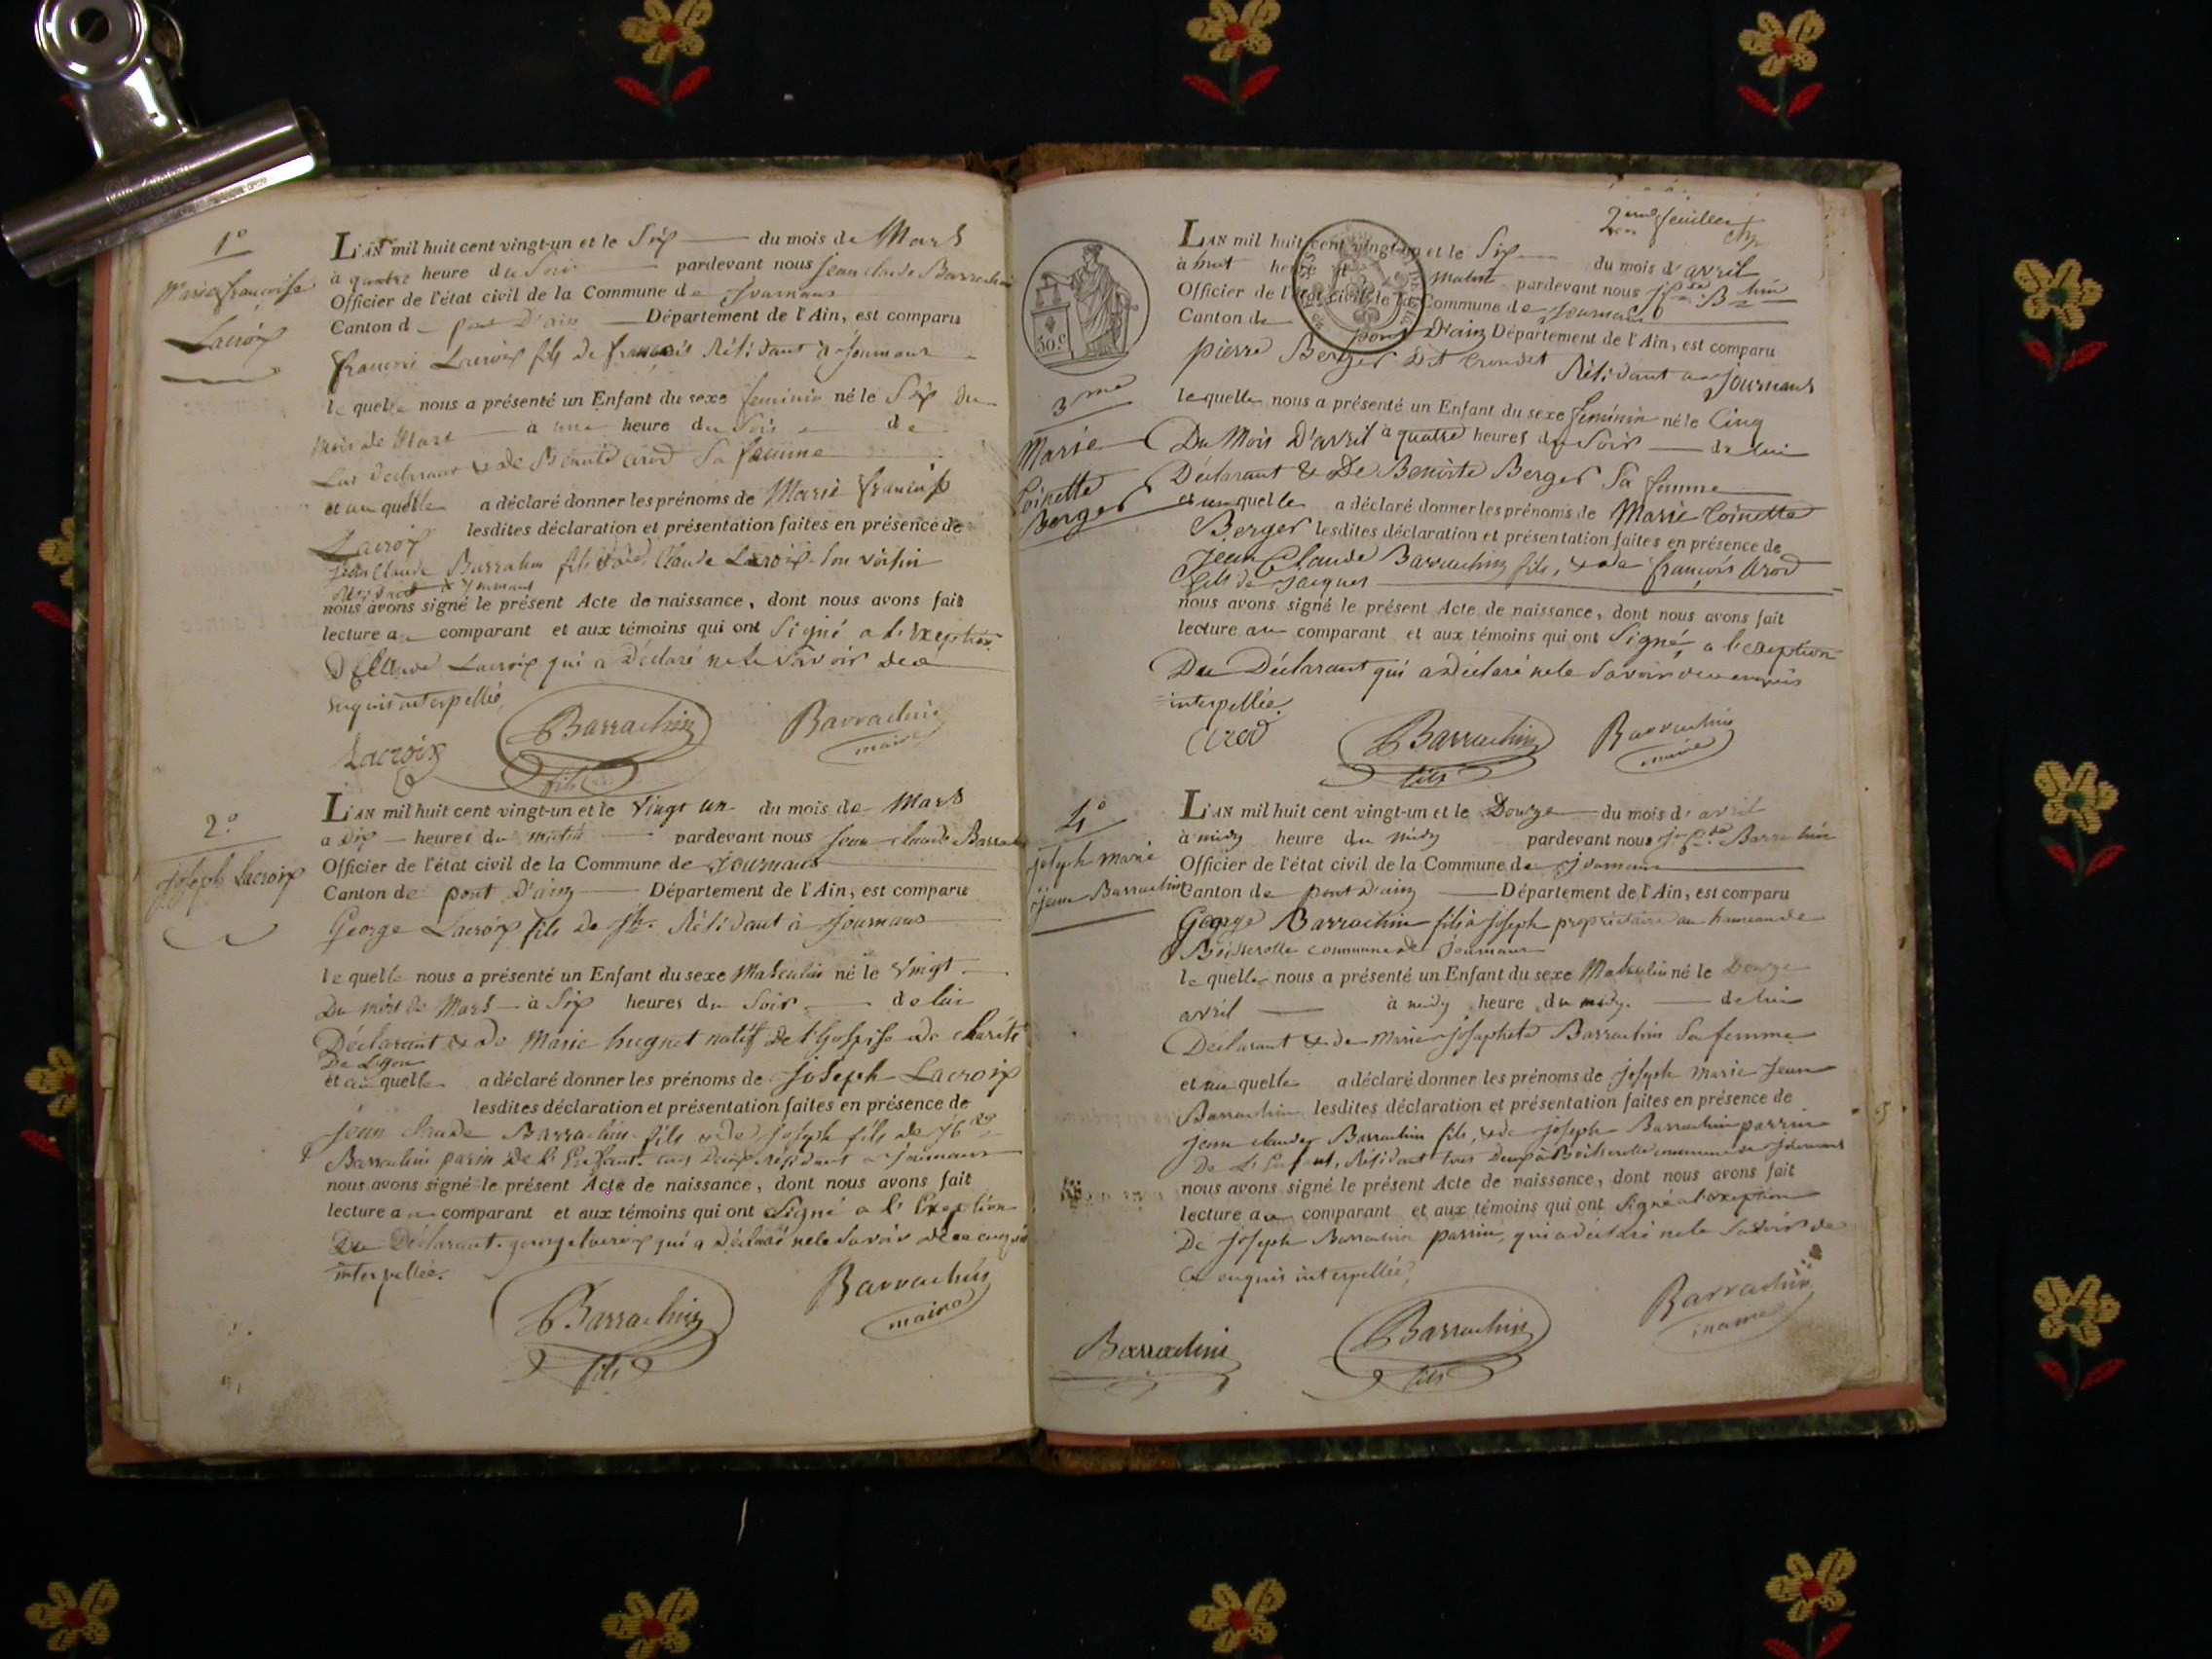 1º
Marie françoise
Lacroix
L'AN mil huit cent vingt-un et le Six du mois de Mars
à quatre heure du Soir pardevant nous jean claude Barrachin
Officier de l'état civil de la Commune de Journans
Canton de pont D'ain Département de l'Ain, est comparu
françois Lacroix fils de françois Résidant a Journans
le quelle nous a présenté un Enfant du sexe feminin né le Six du
mois de Mars à une heure du Soir de
Lui Declarant & de Benoite arod Sa femme
et au quelle a déclaré donner les prénoms de Marie françoise
Lacroix lesdites déclaration et présentation faites en présence de
Jean Claude Barrachin fils & de Claude Lacroix Son voisin
nous avons signé le présent Acte de naissance, dont nous avons fait
lecture au comparant et aux témoins qui ont Signé a l'Exeption
De Claude Lacroix qui a Déclaré ne le Savoir de ce
enquis interpellée
Lacroix Barrachin fils Barrachin maire
2º
Joseph Lacroix
L'AN mil huit cent vingt-un et le Vingt un du mois de Mars
a Dix heures du matin pardevant nous Jean claude Barrachin
Officier de l'état civil de la Commune de Journans
Canton de pont D'ain Département de l'Ain, est comparu
George Lacroix fils de jh. Résidant à Journans
le quelle nous a présenté un Enfant du sexe Masculin né le Vingt
Du mois de Mars à Six heures du Soir de lui
Déclarant & de Marie hugnet natif de l'Hospise de charité
De Lyon
et au quelle a déclaré donner les prénoms de Joseph Lacroix
lesdites déclaration et présentation faites en présence de
Jean claude Barrachin fils & de Joseph fils de
Barrachin parin de l'Enfant tous Deux Résidant a Journans
nous avons signé le présent Acte de naissance, dont nous avons fait
lecture au comparant et aux témoins qui ont Signé a l'Exeption
Du Déclarant george lacroix qui a Déclaré ne le Savoir de ce enquis
interpellée.
Barrachin fils Barrachin maire
2me feuillet
L'AN mil huit cent vingt-un et le Six du mois d'avril
à huit heure du matin pardevant nous
Officier de l'état civil de la Commune de Journans
Canton de pont D'ain Département de l'Ain, est comparu
pierre Berger dit Résidant a Journans
50.c
3me
Marie
Toinette
Berger
le quelle nous a présenté un Enfant du sexe feminin né le Cinq
Du Mois D'avril à quatre heures du Soir de lui
Déclarant & De Benoite Berger Sa femme
et au quelle a déclaré donner les prénoms de Marie Toinette
Berger lesdites déclaration et présentation faites en présence de
Jean Claude Barrachin fils, & de françois Arod
fils de Jacques
nous avons signé le présent Acte de naissance, dont nous avons fait
lecture au comparant et aux témoins qui ont Signé, a l'exeption
Du Déclarant qui a Déclaré ne le Savoir de ce enquis
interpellée.
arod Barrachin fils Barrachin maire
4º
joseph marie
jean Barrachin
L'AN mil huit cent vingt-un et le Douze du mois d'avril
à midy heure du midy pardevant nous Barrachin
Officier de l'état civil de la Commune de Journans
Canton de pont D'ain Département de l'Ain, est comparu
George Barrachin fils à Joseph propriétaire au hameau de
Boisserolle commune de Journans
le quelle nous a présenté un Enfant du sexe Masculin né le Douze
avril à midy heure du midy. de lui
Déclarant & de Marie josephete Barrachin Sa femme
et au quelle a déclaré donner les prénoms de Joseph Marie Jean
Barrachin lesdites déclaration et présentation faites en présence de
Jean claude Barrachin fils, & de Joseph Barrachin parrin
De L'Enfant, Résidant tous Deux à Boisserolle commune de Journans
nous avons signé le présent Acte de naissance, dont nous avons fait
lecture au comparant et aux témoins qui ont Signé a l'exeption
De Joseph Barrachin parrin, qui a déclaré ne le Savoir de
Ce enquis interpellée,
Barrachin Barrachin fils Barrachin maire